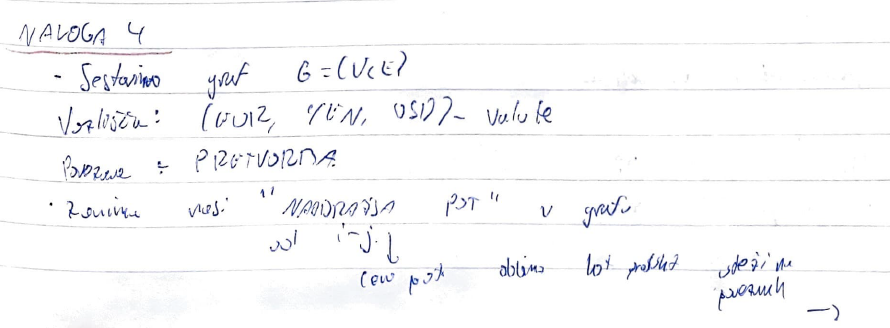 NALOGA 4
- Sestavimo graf G=(V,E)
Vozlišča: (EUR, YEN, USD) - valute
Povezave = PRETVORBA
• Zanima nas: "NAJDRAŽJA POT" v grafu
od i-j.
cena poti dobimo kot produkt uteži na
povezavah
→